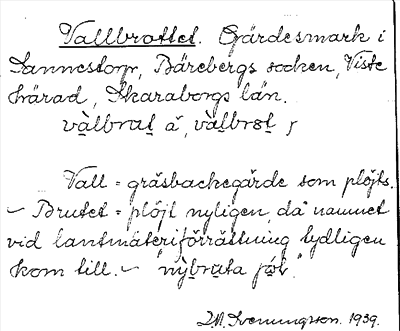 Vallbrottet. Gärdesmark i
Sannestorp, Bärebergs socken, Viste
härad, Skaraborgs län.
válbrat å, válbrøt /
Vall = gräsbackegärde som plöjts.
– Brutet = plöjt nyligen, då namnet
vid lantmäteriförrättning tydligen
kom till. – "nýbrata jøl".
Svenungsson. 1939.